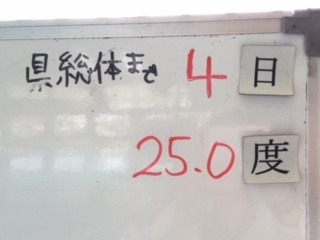 県総体まで 4日
25.0度